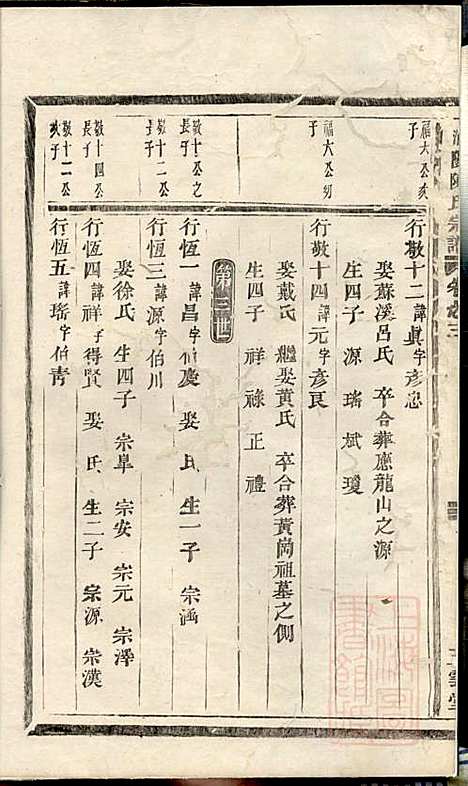 陳氏宗譜
卷之三
福六公次子
行敬十二諱真字彥忠
娶蘇溪呂氏 卒合葬應龍山之源
生四子 源 瑤 斌 瓊
福六公幼子
行敬十四諱元字彥良
娶戴氏 繼娶黃氏 卒合葬黃崗祖墓之側
生四子 祥 祿 正 禮
第三世
敬十公之長子
行恆一諱昌字 慶 娶 氏 生一子 宗涵
敬十二公長子
行恆三諱源字伯川
娶徐氏 生四子 宗皐 宗安 宗元 宗澤
敬十四公長子
行恆四諱祥字得賢 娶 氏 生二子 宗源 宗漢
敬十二公次子
行恆五諱瑤字伯青